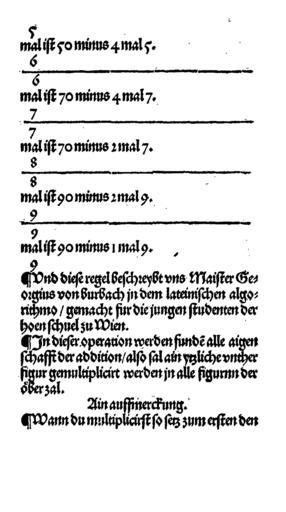 5
mal iſt 50 minus 4 mal 5.
6
6
mal iſt 70 minus 4 mal 7.
7
7
mal iſt 70 minus 2 mal 7.
8
8
mal iſt 90 minus 2 mal 9.
9
9
mal iſt 90 minus 1 mal 9.
9
¶Vnd dieſe regel beſchreybt vns Maiſter Ge-
orgius von burbach jn dem lateiniſchen algo-
rithmo / gemacht für die jungen ſtudenten der
hoen ſchuel zu Wien.
¶In dieſer operation werden fundē alle aigen
ſchafft der addition / alſo ſal ain ytzliche vnther
figur gemultiplicirt werden jn alle figurnn der
öber zal.
Ain auffmerckung.
¶Wann du multiplicirſt ſo ſetz zum erſten den